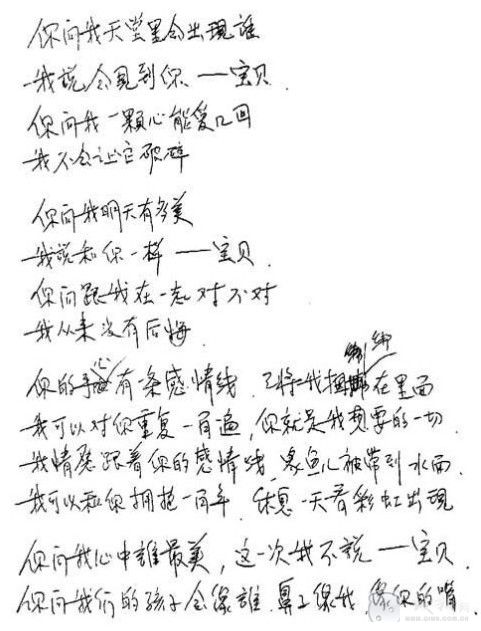 你问我天堂里会出現誰
我说会见到你 ——宝贝.
你问我一顆心能爱几回
我不会让它破碎
你问我明天有多美
我说和你一样 ——宝贝.
你问跟我在一起对不对
我从来没有后悔.
你的手心有一条感情线 已将我捆绑在里面
我可以对你重复一百遍,你就是我想要的一切.
我情愿跟着你的感情线 象鱼儿被带到水面.
我可以和你拥抱一百年 休息一天看彩虹出现
你问我心中誰最美,这一次我不说 ——宝贝.
你问我们的孩子会像誰 鼻子像我 像你的嘴